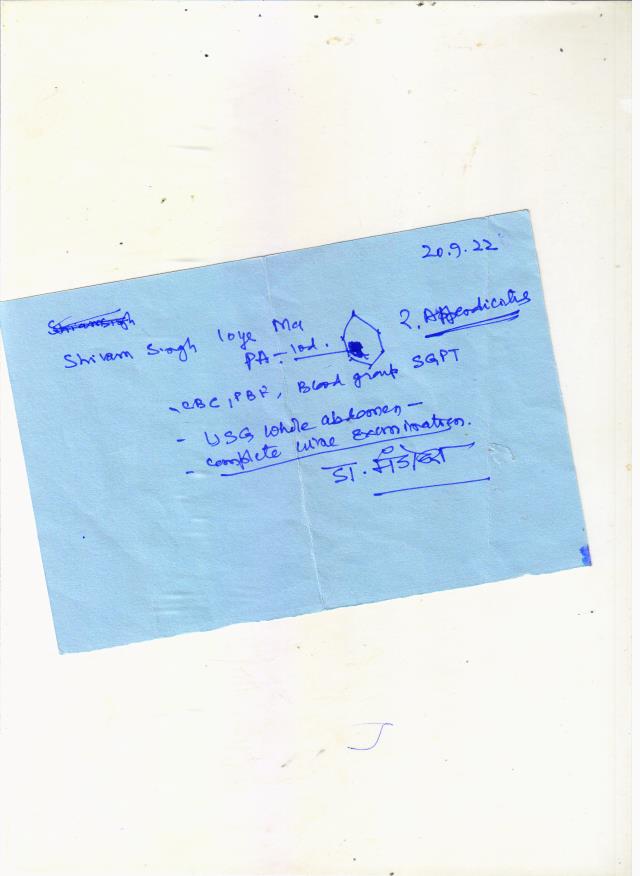 20.9.22
Shivam Singh
Shivam Singh 10ye Ma
PA - ? Appendicitis
- CBC, PBF, Blood group SGPT
- USG Whole abdomen -
- complete urine Examination.
डा.